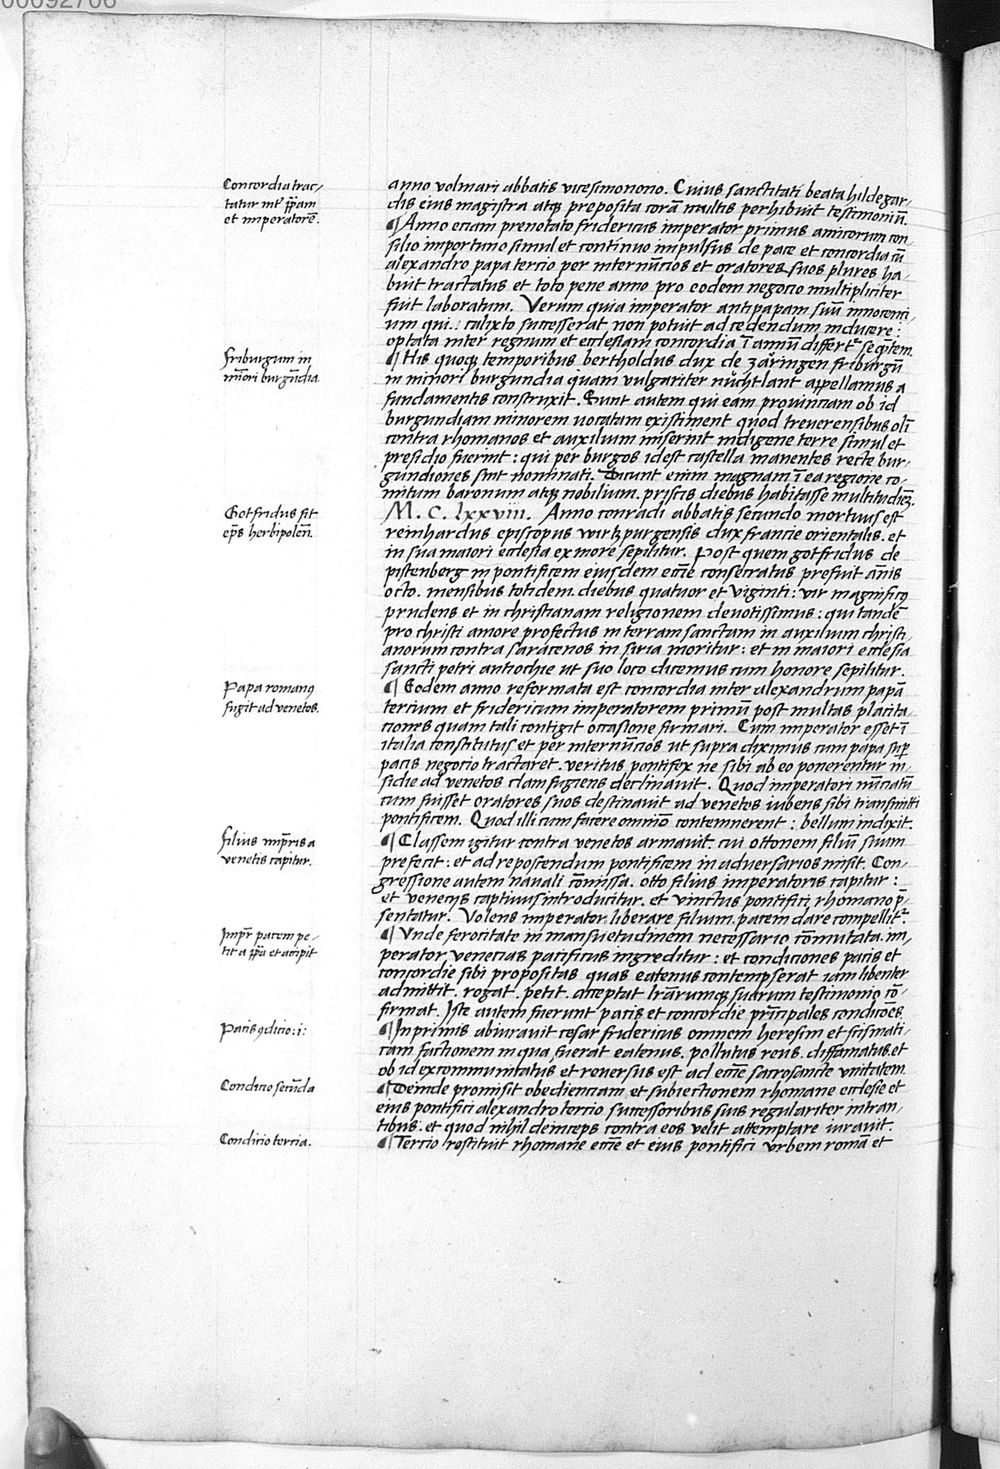 00092706
Concordia trac-
tatur int' ppam
et imperatorē.
anno volmari abbatis vicesimonono. Cuius sanctitati beata hildegar-
dis eius magistra atqꝫ preposita corā multis perhibuit testimoniū.
¶ Anno eciam prenotato fridericus imperator primus amicorum con
silio importuno simul et continuo impulsus de pace et concordia cū
alexandro papa tercio per internūcios et oratores suos plures ha
buit tractatus et toto pene anno pro eodem negocio multipliciter
fuit laboratum. Verum quia imperator antipapam suū innocenci
um qui calixto successerat non potuit ad cedendum inducere:
optata inter regnum et ecclesiam concordia ī annū differt᷑ seq̄ntem.
friburgum in
miōri burgūdia
¶ His quoqꝫ temporibus bertholdus dux de zäringen friburgū
in minori burgundia quam vulgariter nüchtlant appellamus a
fundamentis construxit. Sunt autem qui eam prouinciam ob id
burgundiam minorem uocatam existiment quod treuerensibus oli
contra rhomanos et auxilium miserint indigene terre simul et
presidio fuerint: qui per burgos idest castella manentes recte bur-
gundiones sint nominati. Dicunt enim magnam ī ea regione co-
mitum baronum atqꝫ nobilium priscis diebus habitasse multitudinē.
Gotfridus fit
ep̄s herbipoleñ.
M. C. lxxviii. Anno conradi abbatis secundo mortuus est
reinhardus episcopus wirtzpurgensis dux francie orientalis. et
in sua maiori ecclesia ex more sepilitur. Post quem gotfridus de
pistenberg in pontificem eiusdem eccīe consecratus prefuit añis
octo. mensibus totidem. diebus quatuor et viginti: vir magnificꝰ
prudens et in christianam religionem deuotissimus: qui tandē
pro christi amore profectus in terram sanctam in auxilium christi
anorum contra saracenos in siria moritur: et in maiori ecclesia
sancti petri antiochie ut suo loco dicemus cum honore sepilitur.
Papa romanꝰ
fugit ad venetos.
¶ Eodem anno reformata est concordia inter alexandrum papā
tercium et fridericum imperatorem primū post multas placita
ciones quam tali contigit occasione firmari. Cum imperator esset ī
italia constitutus et per internūcios ut supra diximus cum papa sup
pacis negocio tractaret. veritus pontifex ne sibi ab eo ponerentur in-
sidie ad venetos clam fugiens declinauit. Quod imperatori nūciatū
cum fuisset oratores suos destinauit ad venetos iubens sibi transmitti
pontificem. Quod illi cum facere omnīo contemnerent: bellum indixit.
filius imp̄ris a
venetis capitur.
¶ Classem igitur contra venetos armauit. cui ottonem filiū suum
prefecit: et ad reposcendum pontificem in aduersarios misit. Con-
gressione autem nauali cōmissa. otto filius imperatoris capitur:
et venecijs captiuus introducitur. et vinctus pontifici rhomano p̄-
sentatur. Volens imperator liberare filium. pacem dare compellit᷑.
Imp̄r pacem pe-
tit a ppa et accipit
¶ Vnde ferocitate in mansuetudinem necessario cōmutata. im-
perator venecias pacificus ingreditur: et condiciones pacis et
concordie sibi propositas quas eatenus contempserat iam libenter
admittit. rogat. petit. acceptat lr̄arumqꝫ suarum testimonio cō-
firmat. Iste autem fuerunt pacis et concordie principales condicōes.
Pacis ꝯdicio: i:
¶ Inprimis abiurauit cesar fridericus omnem heresim et scismati
cam factionem in qua fuerat eatenus. pollutus reus. diffamatus. et
ob id excommunicatus et reuersus est ad eccīe sacrosancte vnitatem
Condicio secūda
¶ Deinde promisit obedienciam et subiectionem rhomane ecclesie et
eius pontifici alexandro tercio successoribus suis regulariter intran-
tibus. et quod nihil deinceps contra eos velit attemptare iurauit.
Condicio tercia.
¶ Tercio restituit rhomane eccīe et eius pontifici vrbem romā et